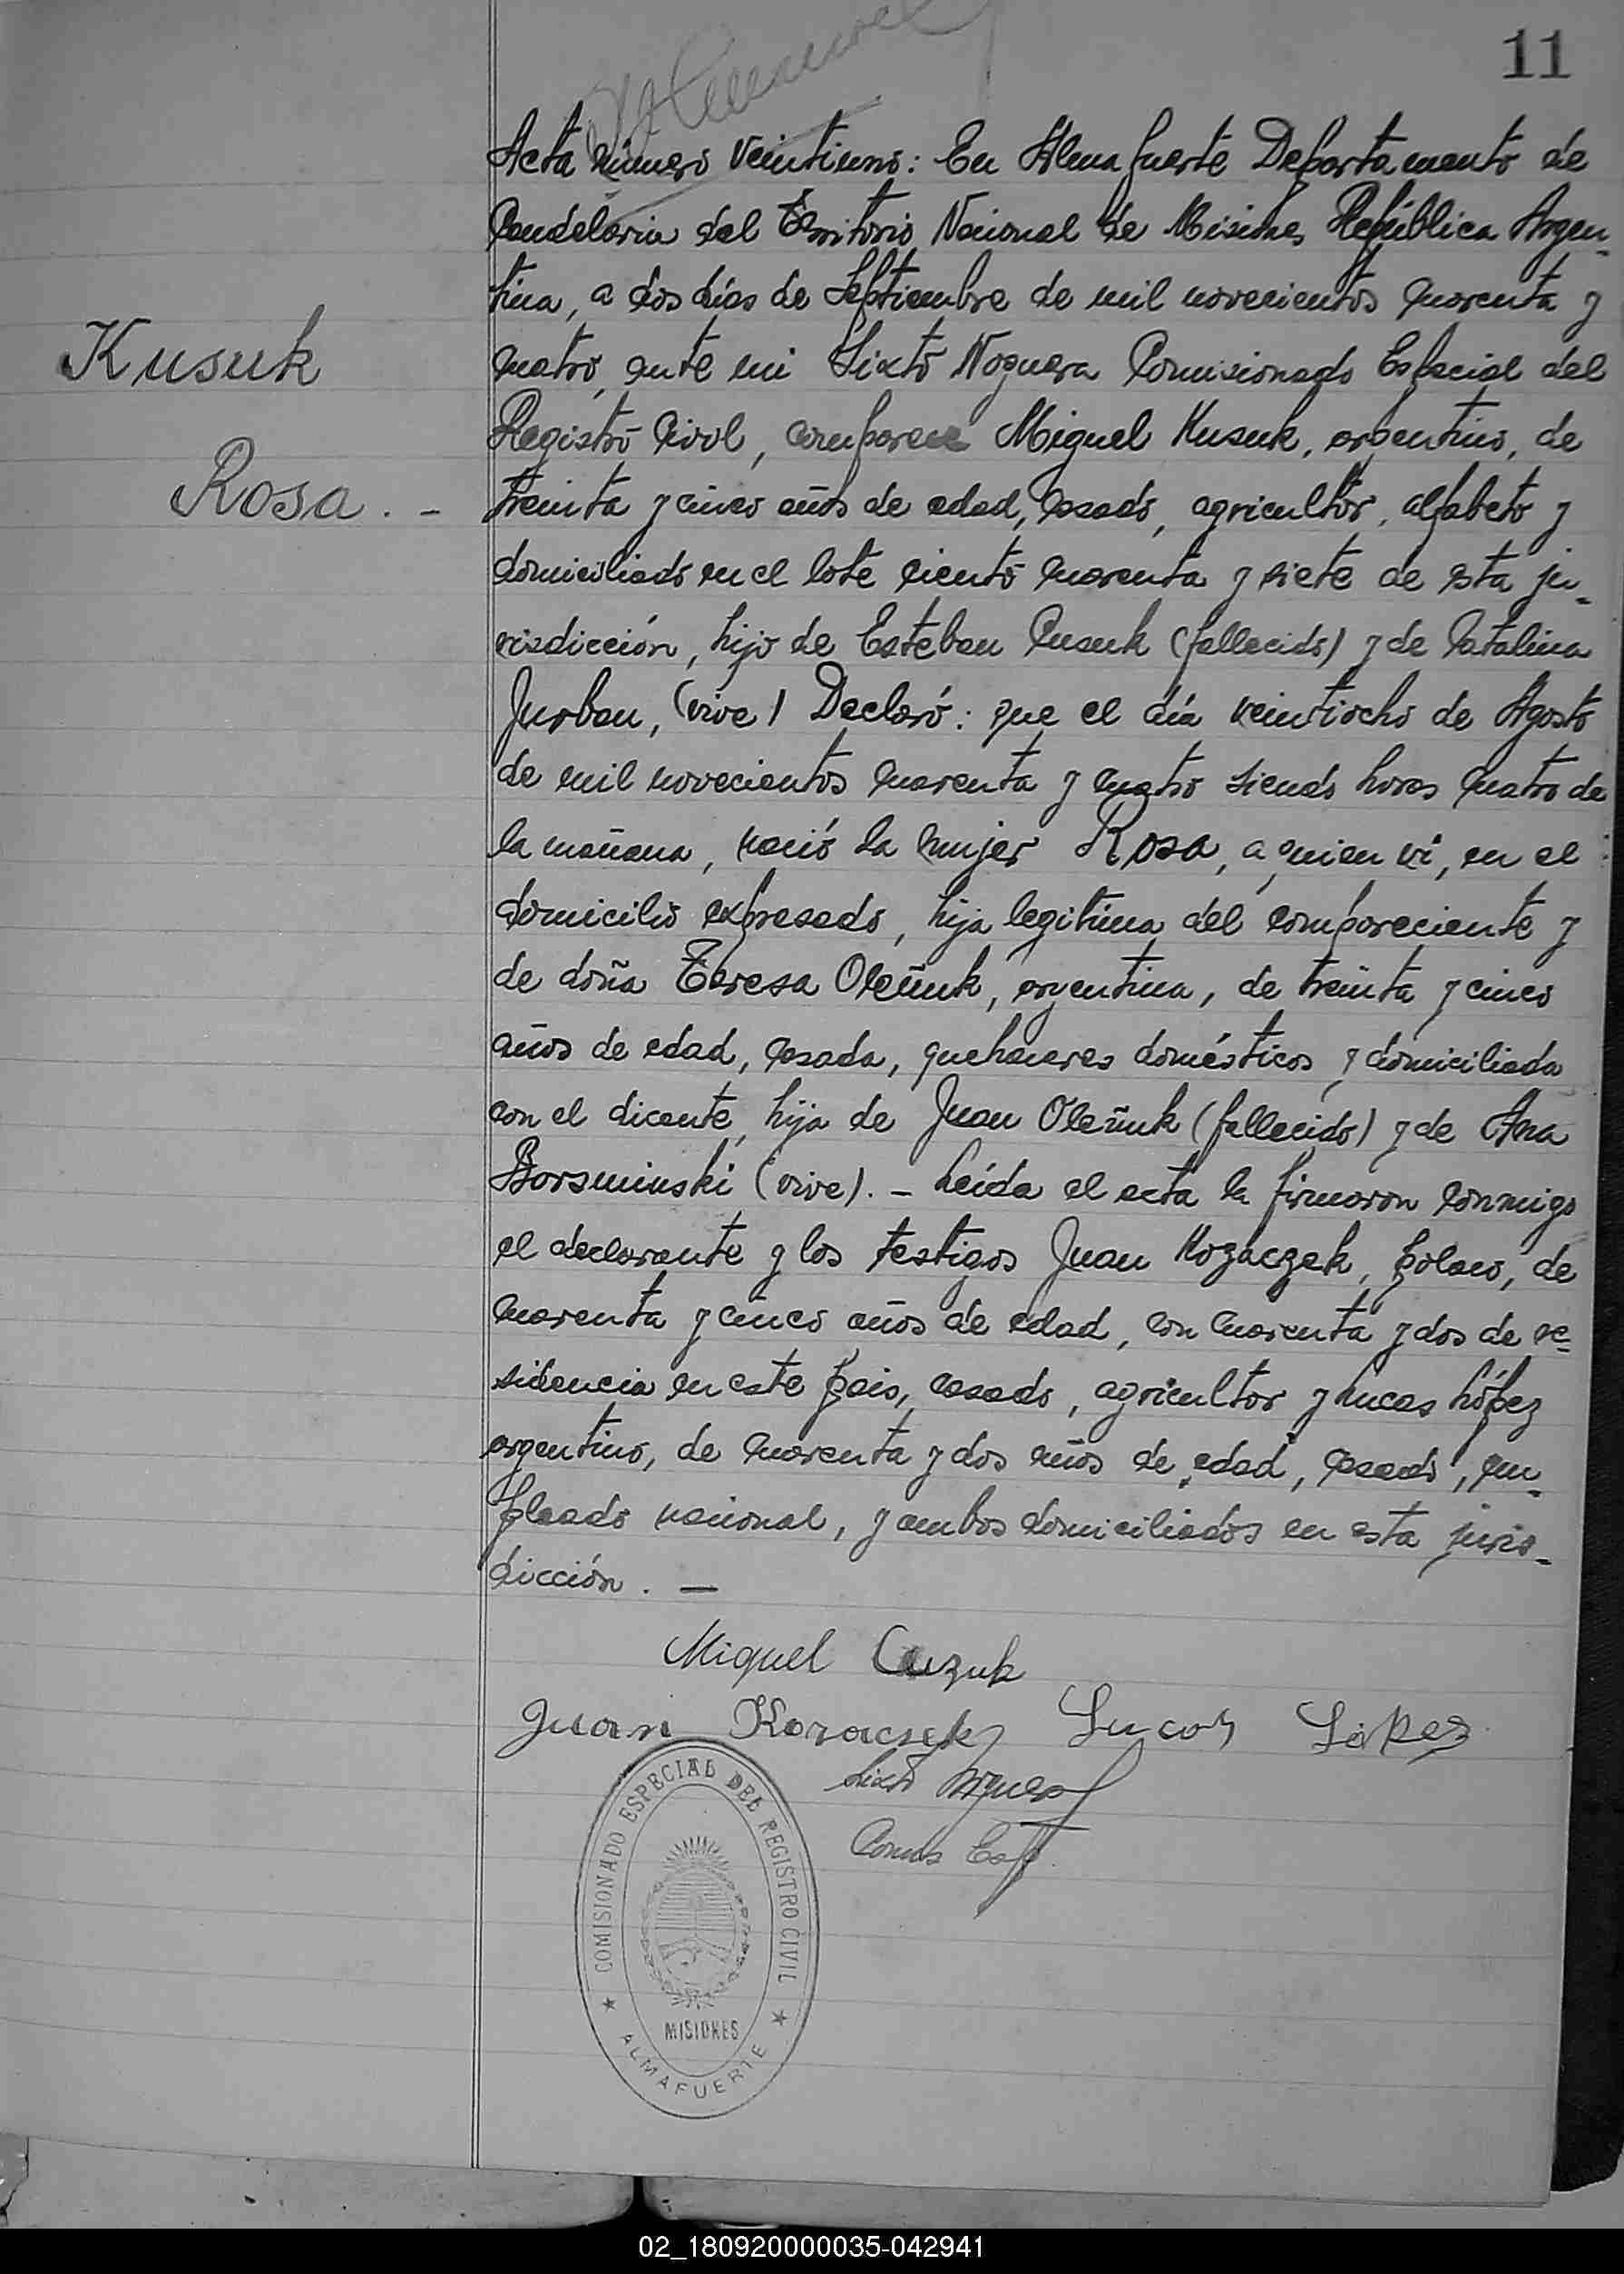 11
Acta número veintiuno: En Almafuerte Departamento de
Candelaria del Territorio Nacional de Misiones República Argen-
tina, a dos días de Septiembre de mil novecientos cuarenta y
cuatro, ante mi Sixto Noguera Comisionado Especial del
Kusuk
Registro Civil, comparece Miguel Kusuk, argentino, de
Rosa. -
treinta y cinco años de edad, casado, agricultor, alfabeto y
domiciliado en el lote ciento cuarenta y siete de esta ju-
risdicción, hijo de Esteban Cusuk (fallecido) y de Catalina
Jurban, (vive) Declaró: que el día veintiocho de Agosto
de mil novecientos cuarenta y cuatro siendo horas cuatro de
la mañana, nació la mujer Rosa, a quien vi, en el
domicilio expresado, hija legítima del compareciente y
de doña Teresa Oleñuk, argentina, de treinta y cinco
años de edad, casada, quehaceres domésticos y domiciliada
con el dicente, hija de Juan Oleñuk (fallecido) y de Ana
Borsminski (vive). - Leída el acta la firmaron conmigo
el declarante y los testigos Juan Kozaczek, polaco, de
cuarenta y cinco años de edad, con cuarenta y dos de re-
sidencia en este pais, casado, agricultor y Lucas López
argentino, de cuarenta y dos años de edad, casado, em-
pleado nacional, y ambos domiciliados en esta juris-
dicción. —
Miguel Cuzuk
Juan Kozaczek Lucas López
Sixto Noguera
Comis Esp.
COMISIONADO ESPECIAL DEL REGISTRO CIVIL
MISIONES
★ ALMAFUERTE ★
02_180920000035-042941